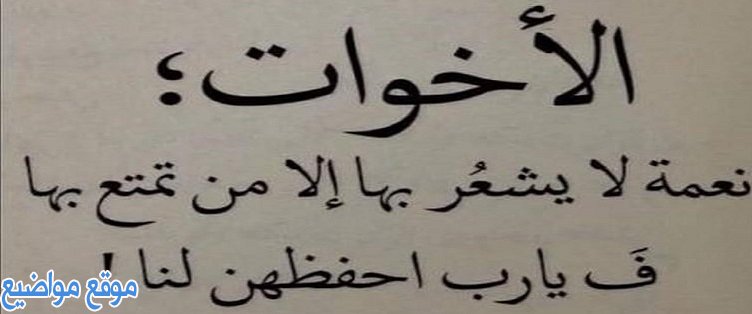 الأخوات؛
نعمة لا يشعُر بها إلا من تمتع بها
فَ يارب احفظهن لنا !
موقع مواضيع